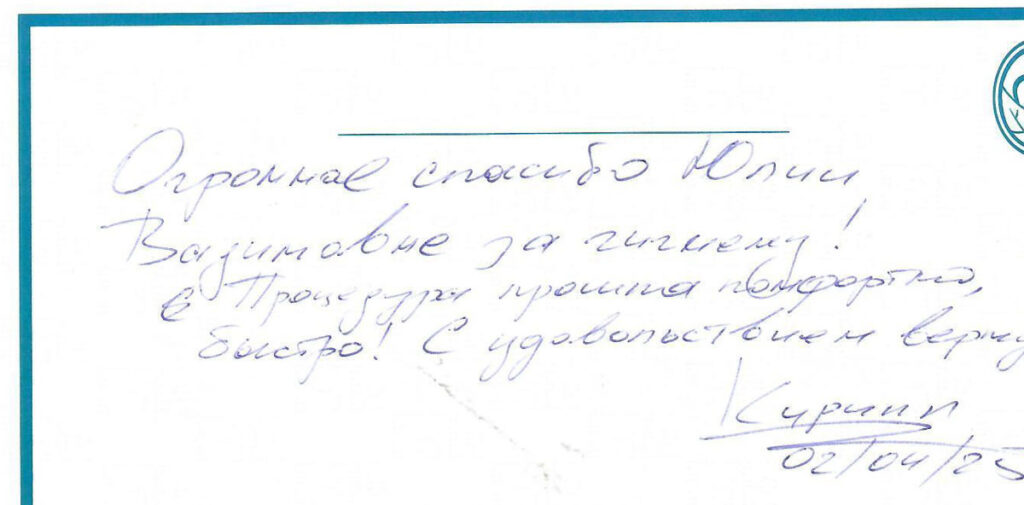 Огромное спасибо Юлии
Вадимовне за гигиену!
Процедура прошла комфортно,
быстро! С удовольствием верну
Кирилл
02/04/25